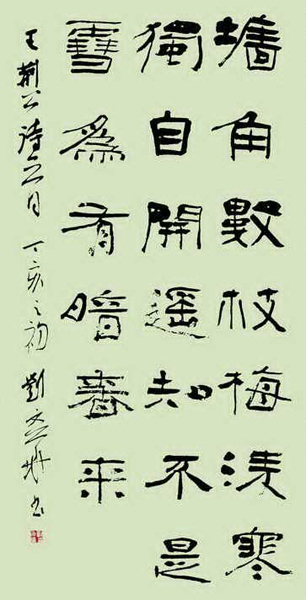 墻角數枝梅淩寒
獨自開遥知不是
雪為有暗香来
王荆公詩 丁亥之初 劉文 書